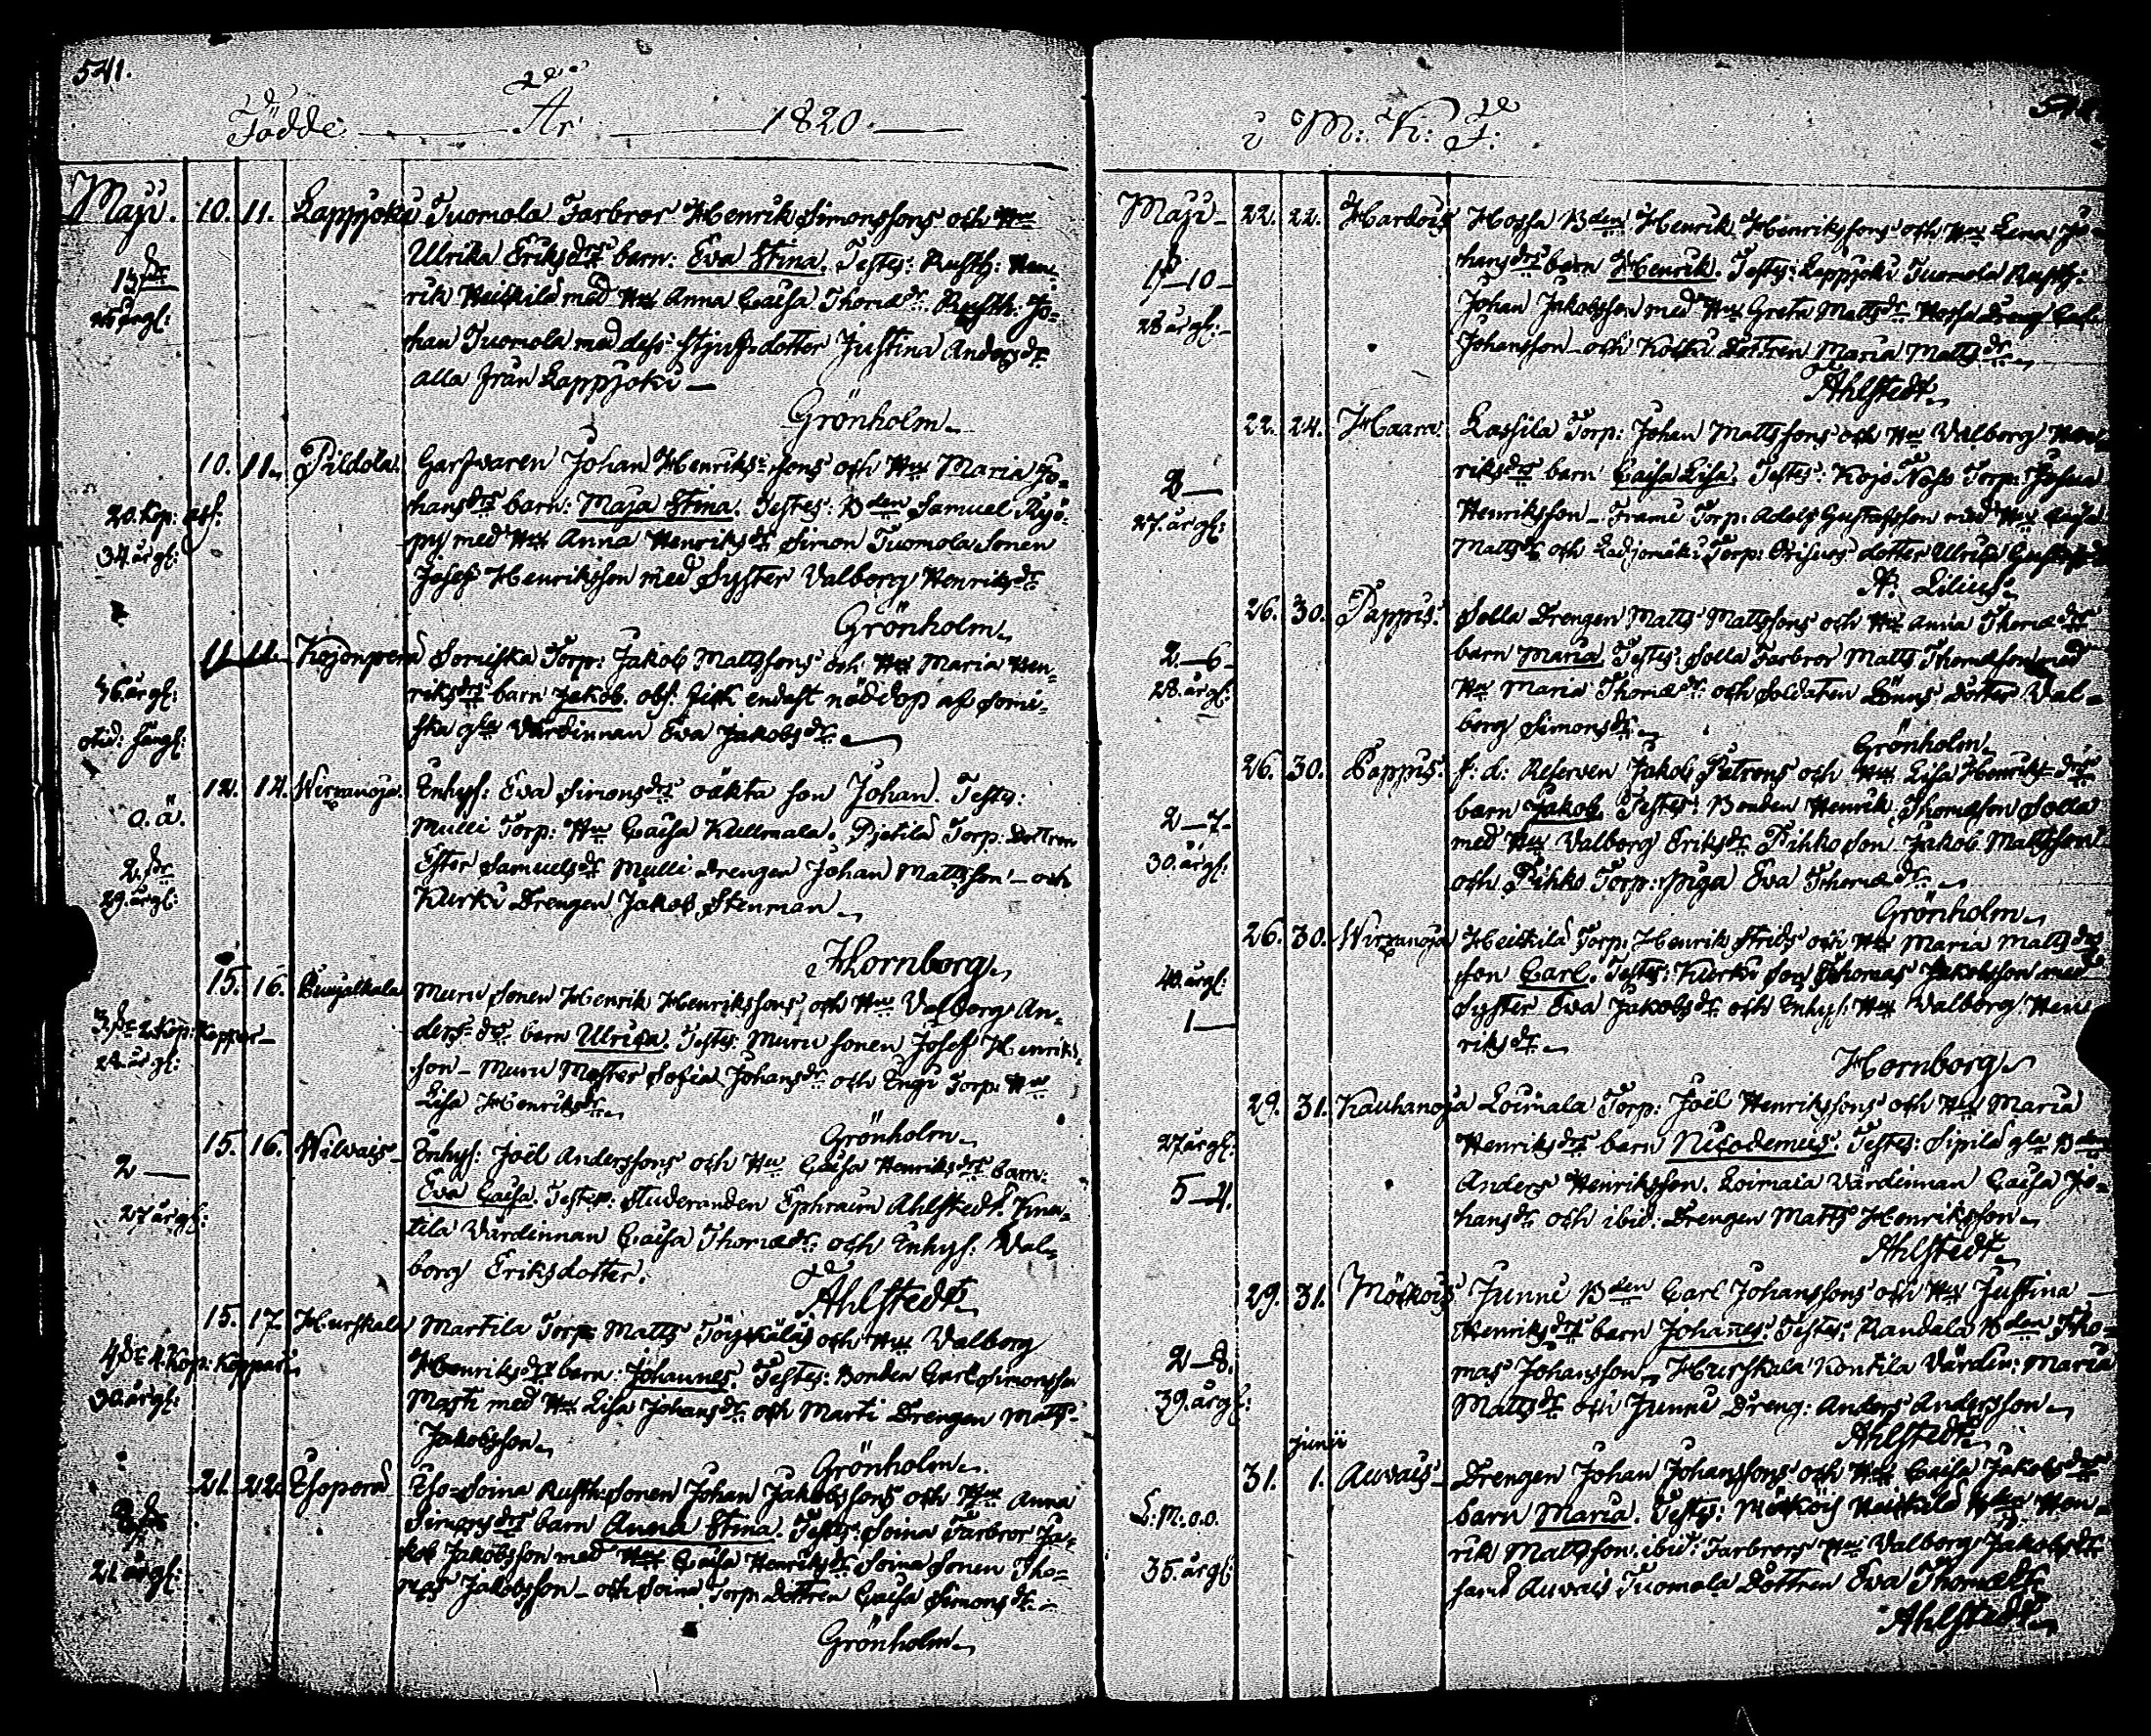 541.
Födde År 1820.
Maji. 10. 11. Lappjoki Tuomola Farbror Henrik Simonssons och Hu
Ulrika Eriksdrs barn: Eva Stina. Testes: Rusth: Hen-
rik Heikkilä med Hu Anna Caisa Thomædr. Rusth: Jo-
han Tuomola med dess Stjufdotter Justina Andersdr
alla från Lappjoki
Grönholm
25 årgl:
10. 11. Pildola. Garfvaren Johan Henrikssons och Hu Maria Jo-
hansdrs barn: Maja Stina. Testes: Bden Samuel
med Hu Anna Henriksdr Simon Tuomola Sonen
Josef Henriksson med Syster Valborg Henriksdr
Grönholm
20. Kop:
34 årgl:
11. 11. Kojonperä Somiska Torp: Jakob Mattssons och Hu Maria Hen-
riksdrs barn Jakob. obs. fick endast nöddop af Somi-
ska gla Värdinnan Eva Jakobsdr
36 årgl:
12. 14. Wirzanoja. Enhys: Eva Simonsdrs oäkta son Johan. Testes:
Mulli Torp: Hu Caisa Kullmala. Pjetilä Torp: Dottren
Ester Samuelsdr Mulli Drengen Johan Mattsson och
Kurki Drengen Jakob Stenman
Hornborg
o. ä.
29. årgl:
15. 16. Punjalkala Muru Sonen Henrik Henrikssons och Hu Valborg An-
dersdrs barn Ulrica. Testes: Muru Sonen Josef Henriks-
son Muru Moster Sofia Johansdr och Engi Torp: Hu
Lisa Henriksdr
Grönholm
22 årgl:
15. 16. Wilvais Enhys: Joël Anderssons och Hu Caisa Henriksdrs barn:
Eva Caisa. Testes: Studeranden Ephraim Ahlstedt.
tila Värdinnan Caisa Thomædr och Enhys: Val-
borg Eriksdotter.
Ahlstedt
2
27 årgl:
15. 17. Hurskala Martila Torp: Matts och Hu Valborg
Henriksdrs barn: Johannes Testes: Bonden Carl Simonsson
Marti med Hu Lisa Johansdr och Marti Drengen Matts
Jakobsson
Grönholm
30. årgl:
21. 22. Esoperä Eso-Soina Rusth: Sonen Johan Jakobssons och Hu Anna
Simonsdrs barn Anna Stina. Testes: Soina Farbror Ja-
kob Jakobsson med Hu Caisa Henriksdr Soina Sonen Tho-
mas Jakobsson och Soina Torp: Dottren Caisa Simonsdr
Grönholm
21 årgl:
i M: K: F:
Maji 22. 22. Hardois Hossa Bden Henrik Henrikssons och Hu Lena Jo-
hansdrs barn Henrik. Testes: Lappjoki Tuomola Rusth:
Johan Jakobsson med Hu Greta Mattsdr Hossa Dreng
Johansson och Kolkki Dottren Maria Mattsdr
Ahlstedt
28 årgl:
22. 24. Haara. Lassila Torp: Johan Mattssons och Hu Valborg Hen-
riksdrs barn Caisa Lisa. Testes: Kojo Torp:
Henriksson Torp: Adolf Gustafsson med Hu Caisa
Mattsdr och Torp: dotter Ulrica
Lilius
2
27. årgl:
26. 30. Pappis. Solla Drengen Matts Mattssons och Hu Anna Thomædrs
barn Maria Testes: Solla Farbror Matts Thomæson med
Hu Maria Thomædr och Soldaten Dotter Val-
borg Simonsdr
Grönholm
2_6
28. årgl:
26. 30. Pappis. f: d: Reserven Jakob Petrons och Hu Lisa Henriksdrs
barn Jakob. Testes: Bonden Henrik Thomæson Solla
med Hu Valborg Eriksdr Pihko Son Jakob Mattsson
och Pihko Torp: Piga Eva Thomædr
Grönholm
2_7
30. årgl:
26. 30. Wirzanoja Heikkilä Torp: Henrik Strids och Hu Maria Mattsdrs
son Carl. Testes: Kurki Son Thomas Jakobsson med
Syster Eva Jakobsdr och Enhys: Hu Valborg Hen-
riksdr
Hornborg
40. årgl:
1
29. 31. Kauhanoja Loimala Torp: Joël Henrikssons och Hu Maria
Henriksdrs barn Nicodemus. Testes: Sipilä gla Bden
Anders Henriksson. Loimala Värdinnan Caisa Jo-
hansdr och ibid: Drengen Matts Henriksson
Ahlstedt
27 årgl:
5_4.
29. 31. Mölkois Junni Bden Carl Johanssons och Hu Justina
Henriksdrs barn Johannes. Testes: Randala Bden Tho-
mas Johansson Hurskala Kontila Värdin: Maria
Mattsdr och Junni Dreng: Anders Andersson
Ahlstedt
2_8.
39. årgl:
Junii
31. 1. Auvais Drengen Johan Johanssons och Hu Caisa Jakobsdrs
barn Maria. Testes: Mölkois Heikkilä Bden Hen-
rik Mattsson. ibid: Farbrors Hu Valborg Jakobsdr
samt Auvais Tuomola Dottren Eva Thomædr
Ahlstedt
35. årgl: